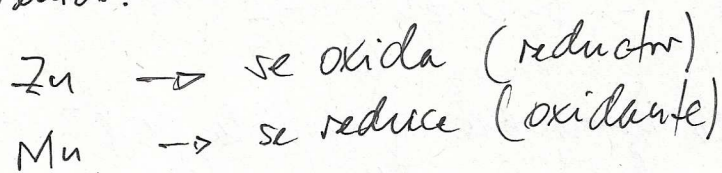 Zn → se oxida (reductor)
Mn → se reduce (oxidante)